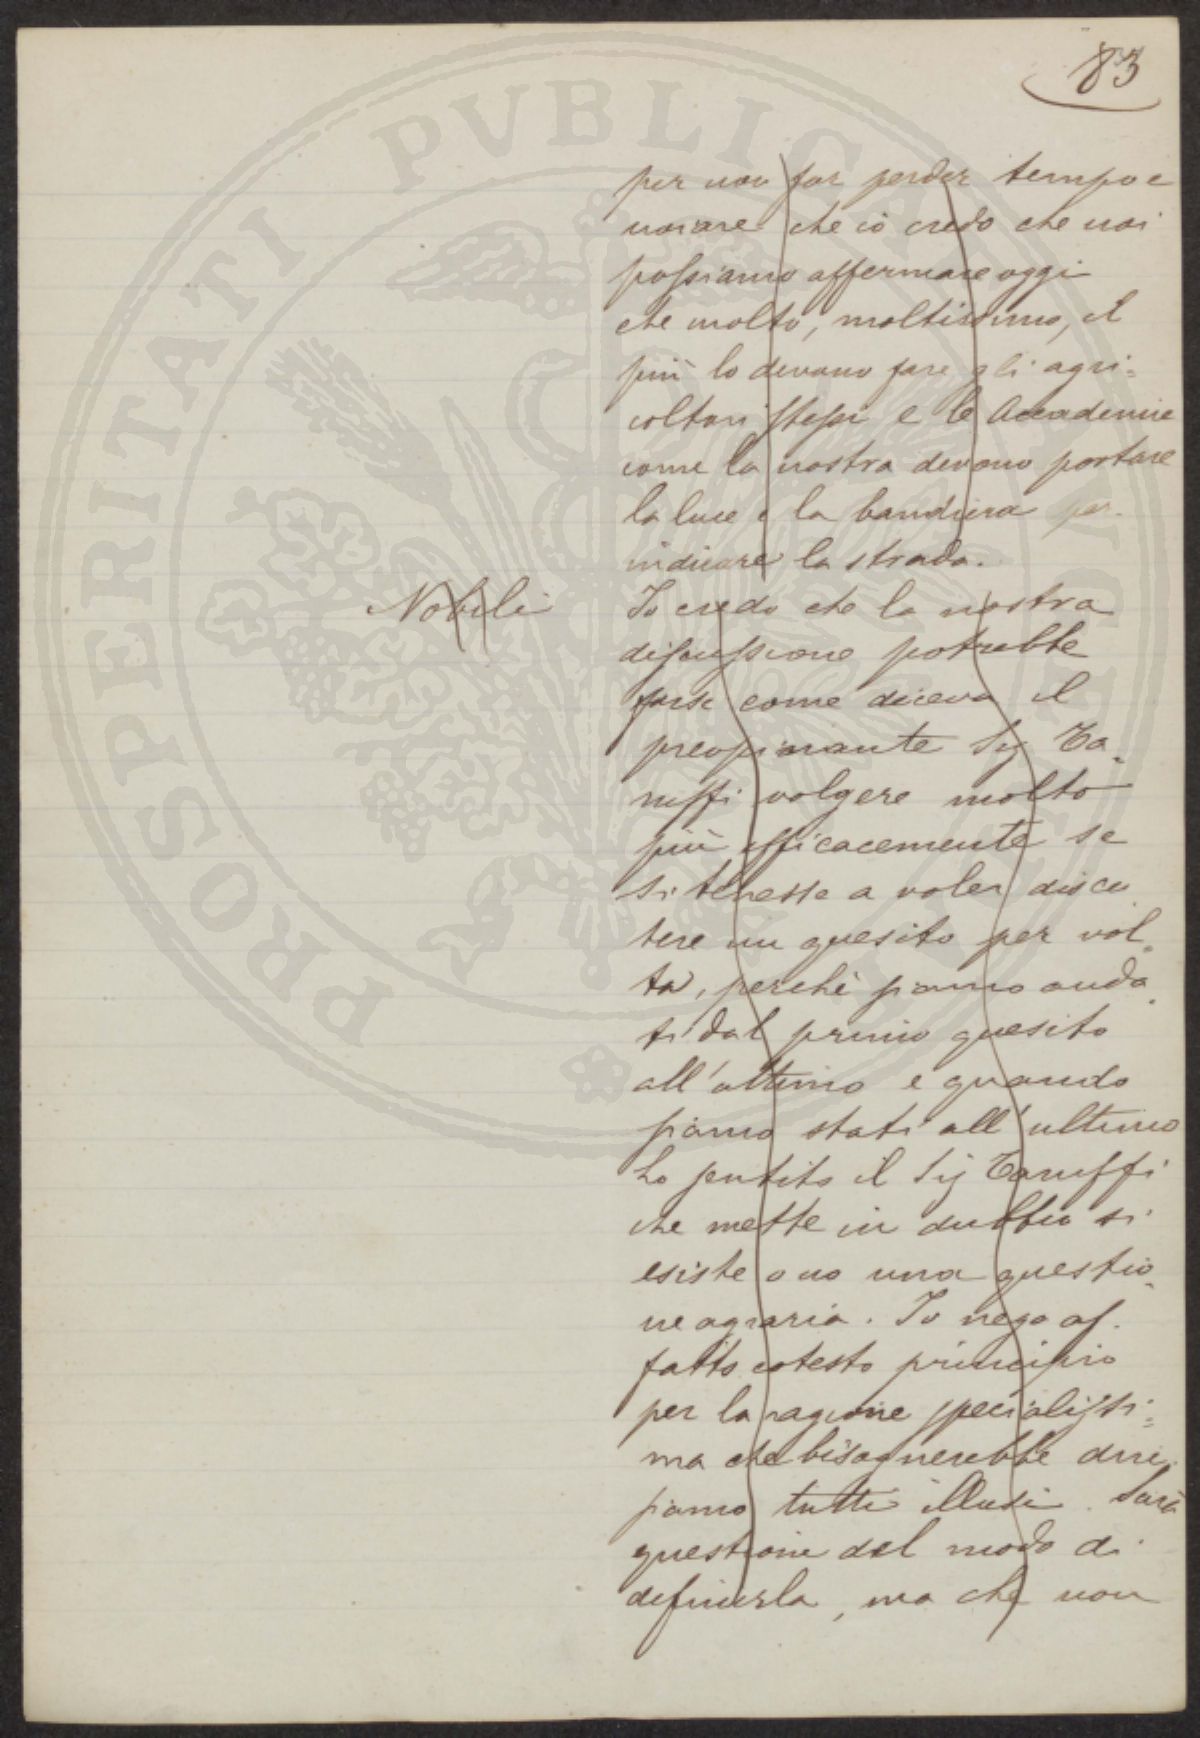 83
per non far perder tempo e
noiare che io credo che noi
possiamo affermare oggi
che molto, moltissimo, il
più lo devono fare gli agri=
coltori stessi e le Accademie
come la nostra devono portare
la luce e la bandiera per
indicare la strada.
Nobili
Io credo che la nostra
discussione potrebbe
forse come diceva il
preopinante Sig Ta-
ruffi volgere molto
più efficacemente se
si tenesse a voler discu
tere un quesito per vol-
ta, perchè siamo anda-
ti dal primo quesito
all'ultimo e quando
siamo stati all'ultimo
ho sentito il Sig Taruffi
che mette in dubbio si
esiste o no una questio-
ne agraria. Io nego af-
fatto cotesto principio
per la ragione specialissi=
ma che bisognerebbe dire
siamo tutti illusi. Sarà
questione del modo di
definirla, ma che non
PROSPERITATI PVBLICAE